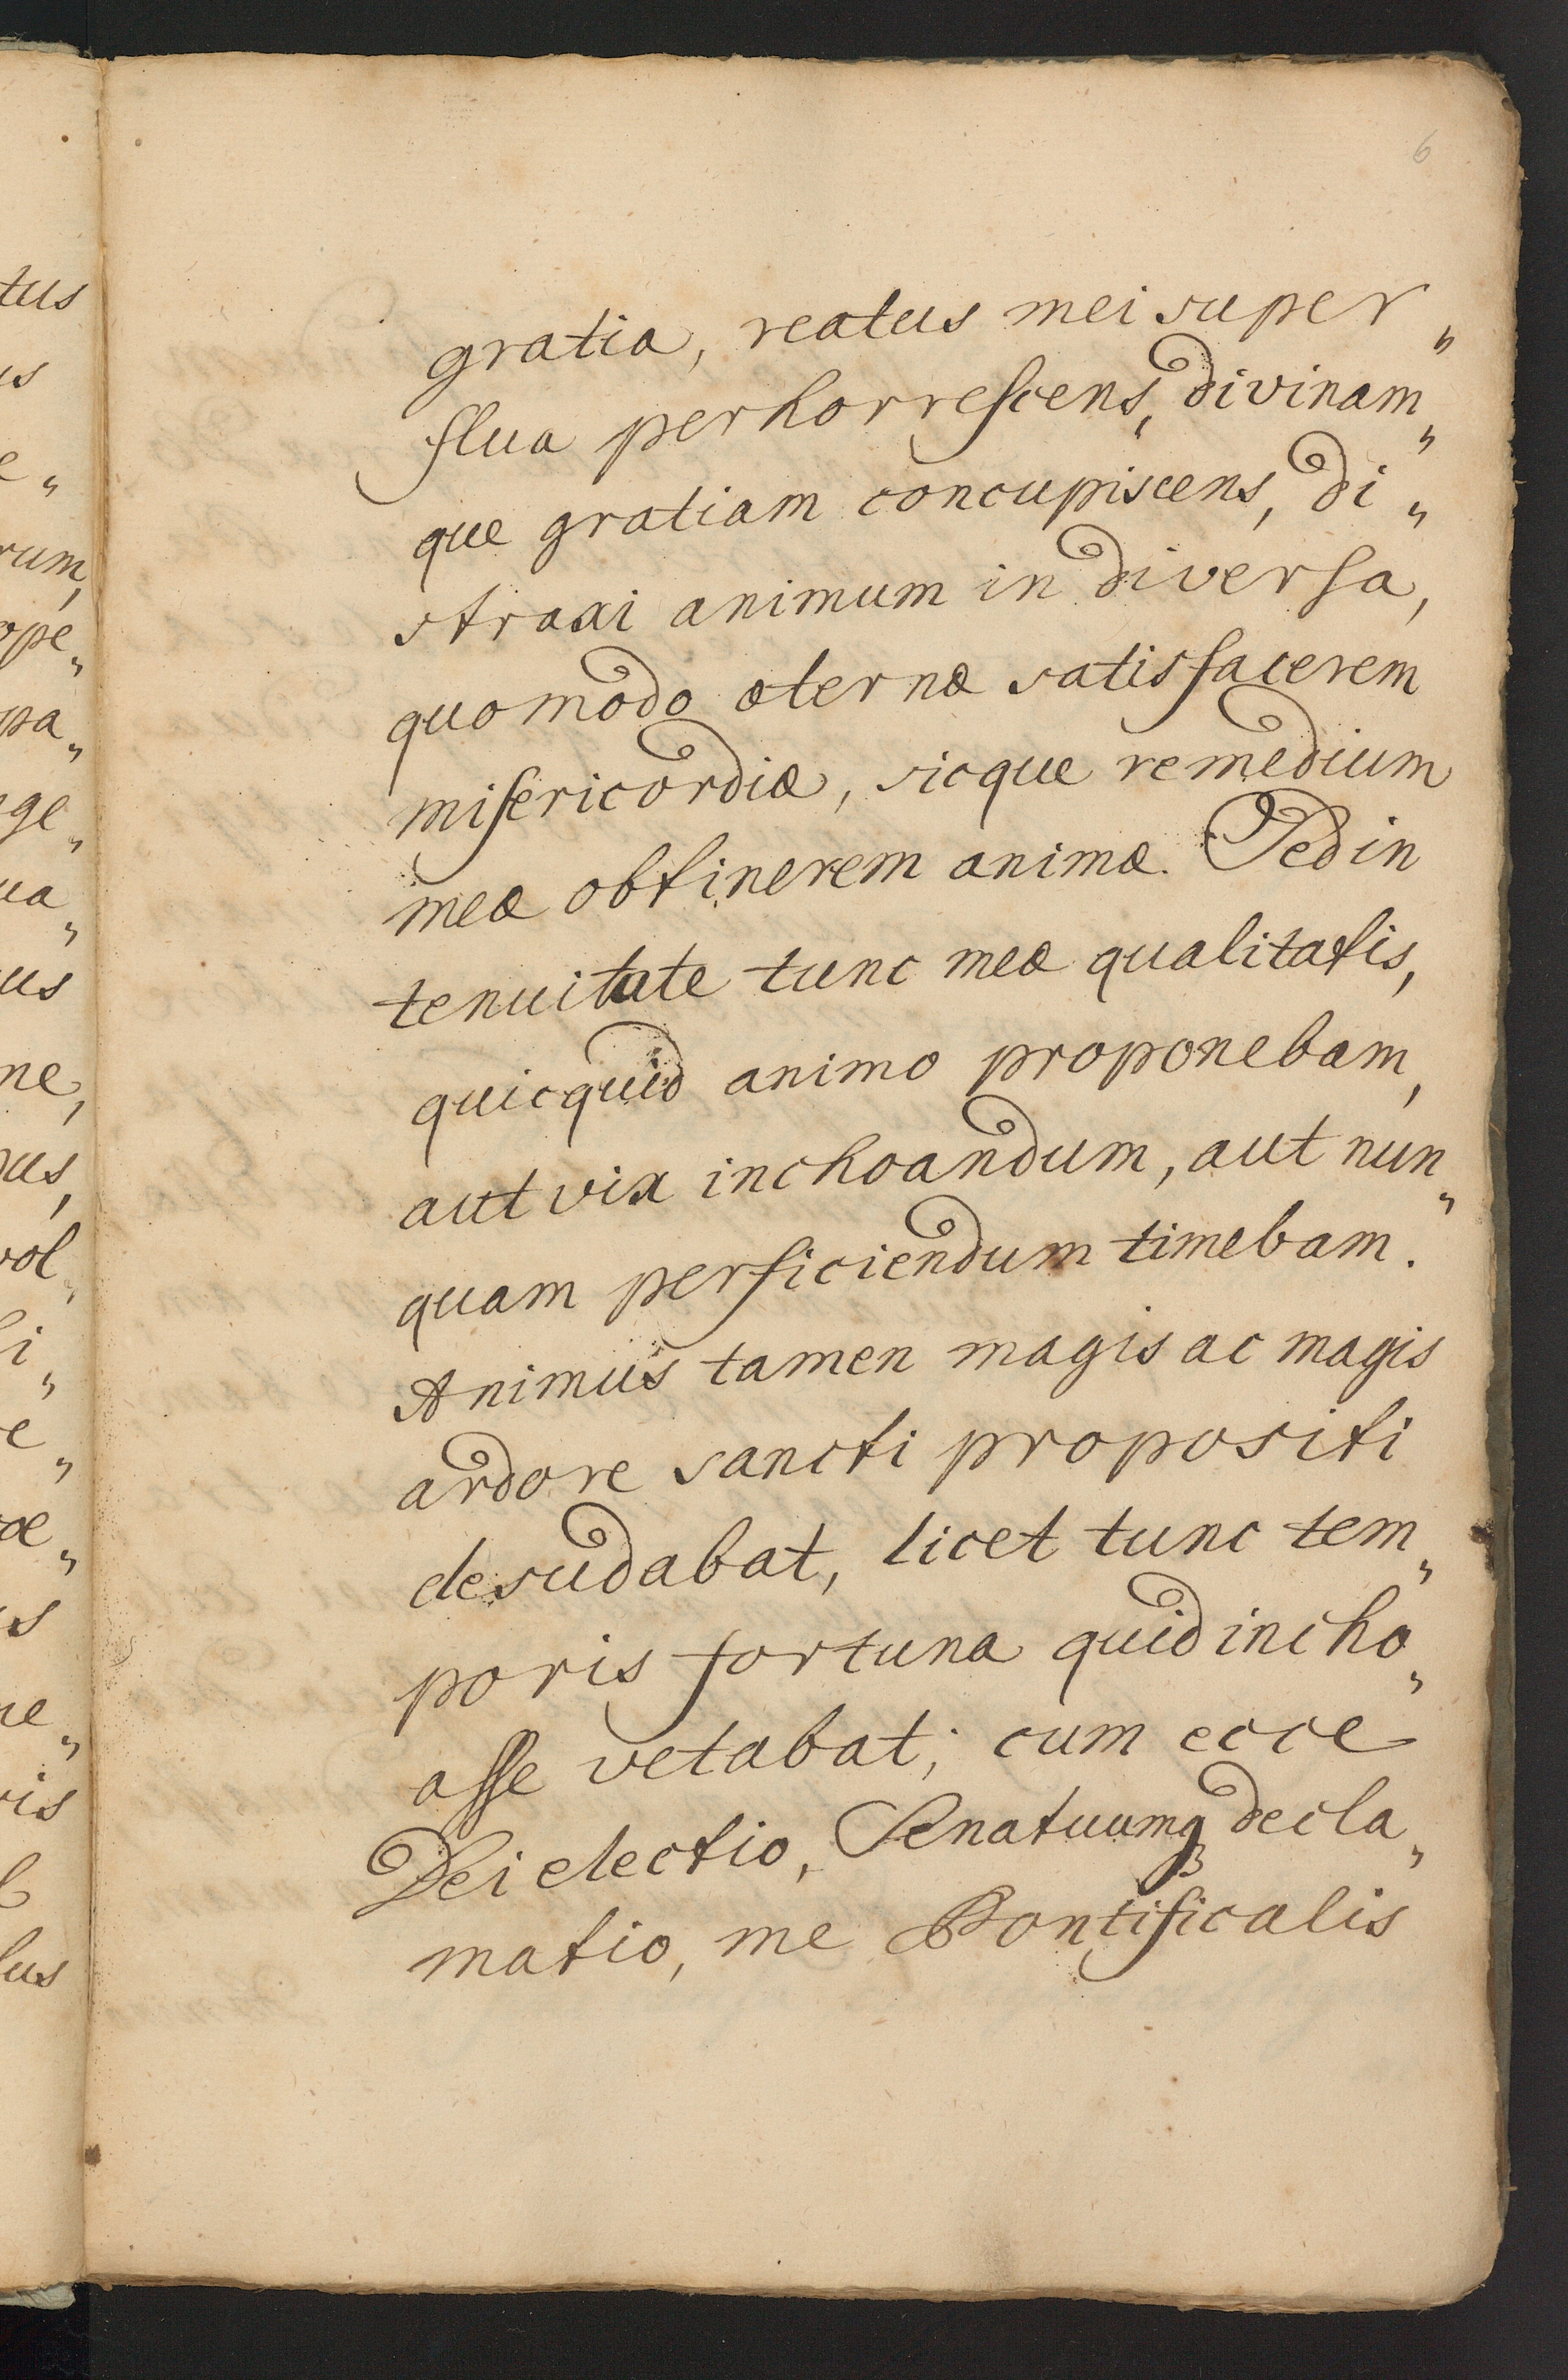 6
gratia, reatus mei super„
flua perhorrescens, divinam„
que gratiam concupiscens, di„
straxi animum in diversa,
quomodo æternæ satisfacerem
misericordiæ, sicque remedium
meæ obtinerem animæ. Sed in
tenuitate tunc meæ qualitatis,
quicquid animo proponebam,
aut vix inchoandum, aut nun„
quam perficiendum timebam.
Animus tamen magis ac magis
ardore sancti propositi
desudabat, licet tunc tem„
poris fortuna quid incho„
asse vetabat; cum ecce
Dei electio, Senatuumqꝫ decla„
matio, me Pontificalis
tus
us
e„
rum,
ope„
pa„
nge„
ua„
us
ne,
ous,
vol„
i„
e„
æ„
us
ne„
vis
lus